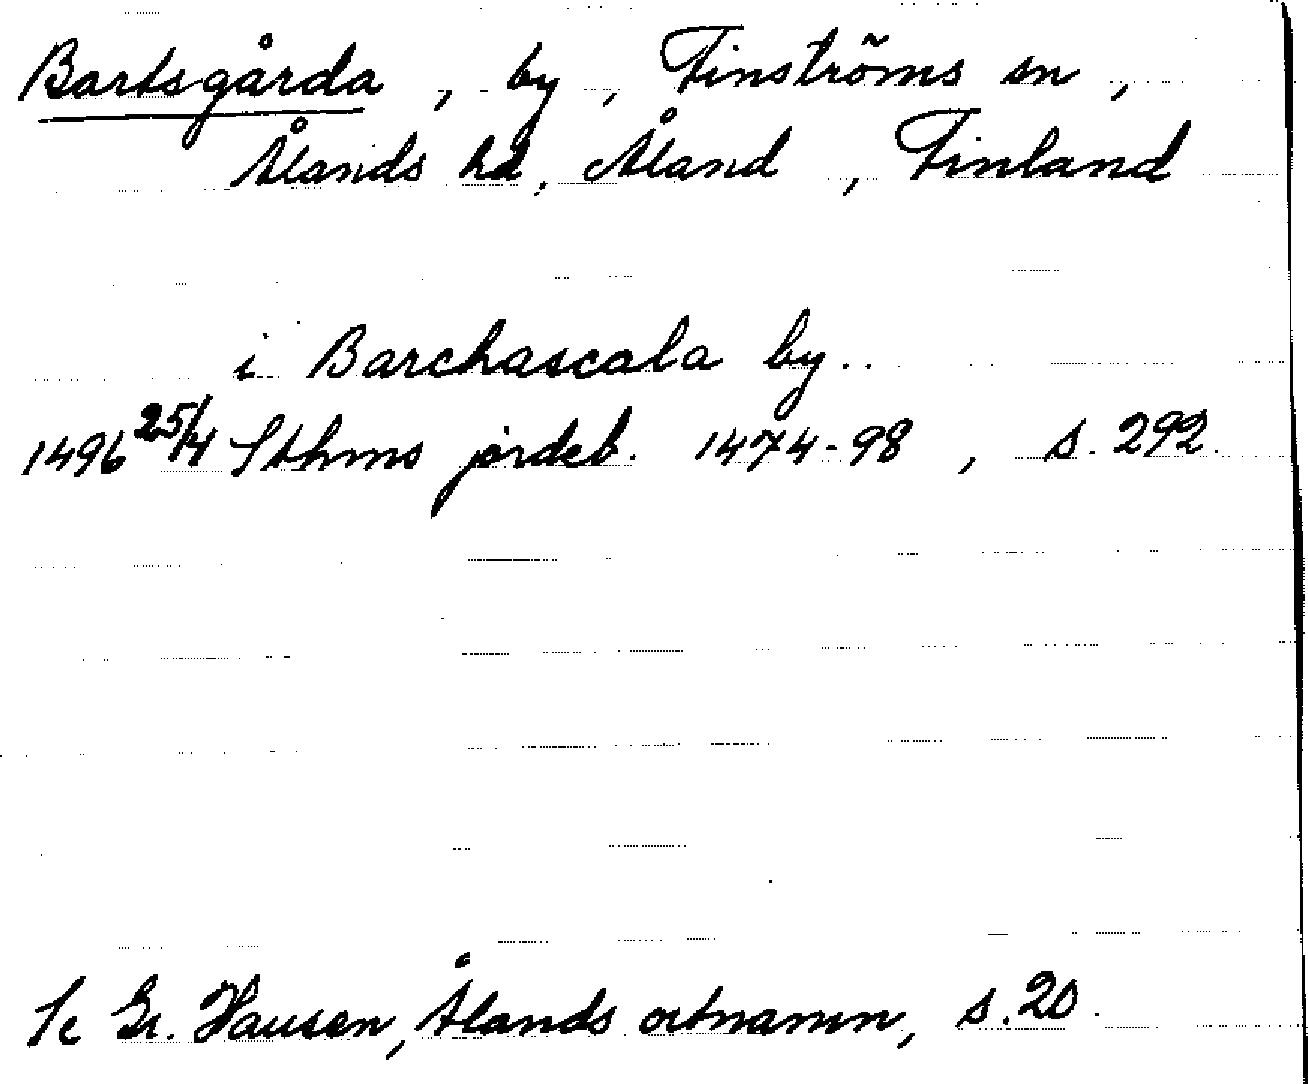 Bartsgårda, by, Finströms sn,
Ålands hd, Åland, Finland
i Barchascala by..
1496 25/4 Sthms jordeb. 1474-98, s. 292.
Se Gr. Hausen, Ålands ortnamn, s. 20.